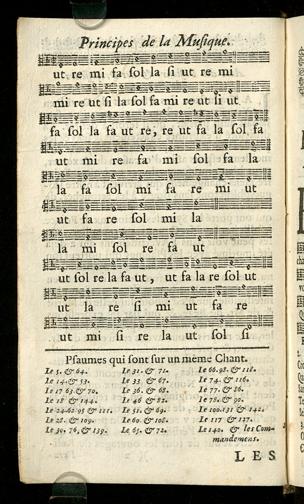 Principes de la Musique.
ut re mi fa sol la si ut re mi
mi re ut si la sol fa mi re ut si ut
fa sol la fa ut re, re ut fa la sol fa
ut mi re fa mi sol fa la
la fa sol mi fa re mi ut
ut fa re sol mi la
la mi sol re fa ut
ut sol re la fa ut, ut fa la re sol ut
ut la re si mi ut fa re
ut mi si re la ut sol si
Psaumes qui sont sur un même Chant.
Le 5. & 64.
Le 14. & 53.
Le 17 63 & 70.
Le 18 & 144.
Le 24.62.95 & 111.
Le 28. & 109.
Le 30. 76, & 139.
Le 31. & 71.
Le 33 & 67.
Le 36. & 68.
Le 46 & 82.
Le 51. & 69.
Le 60. & 108.
Le 65. & 72.
Le 66.98. & 118.
Le 74. & 116.
Le 77. & 86.
Le 78. & 90.
Le 100.131 & 142.
Le 117 & 127.
Le 140. & les Commandemens.
LES